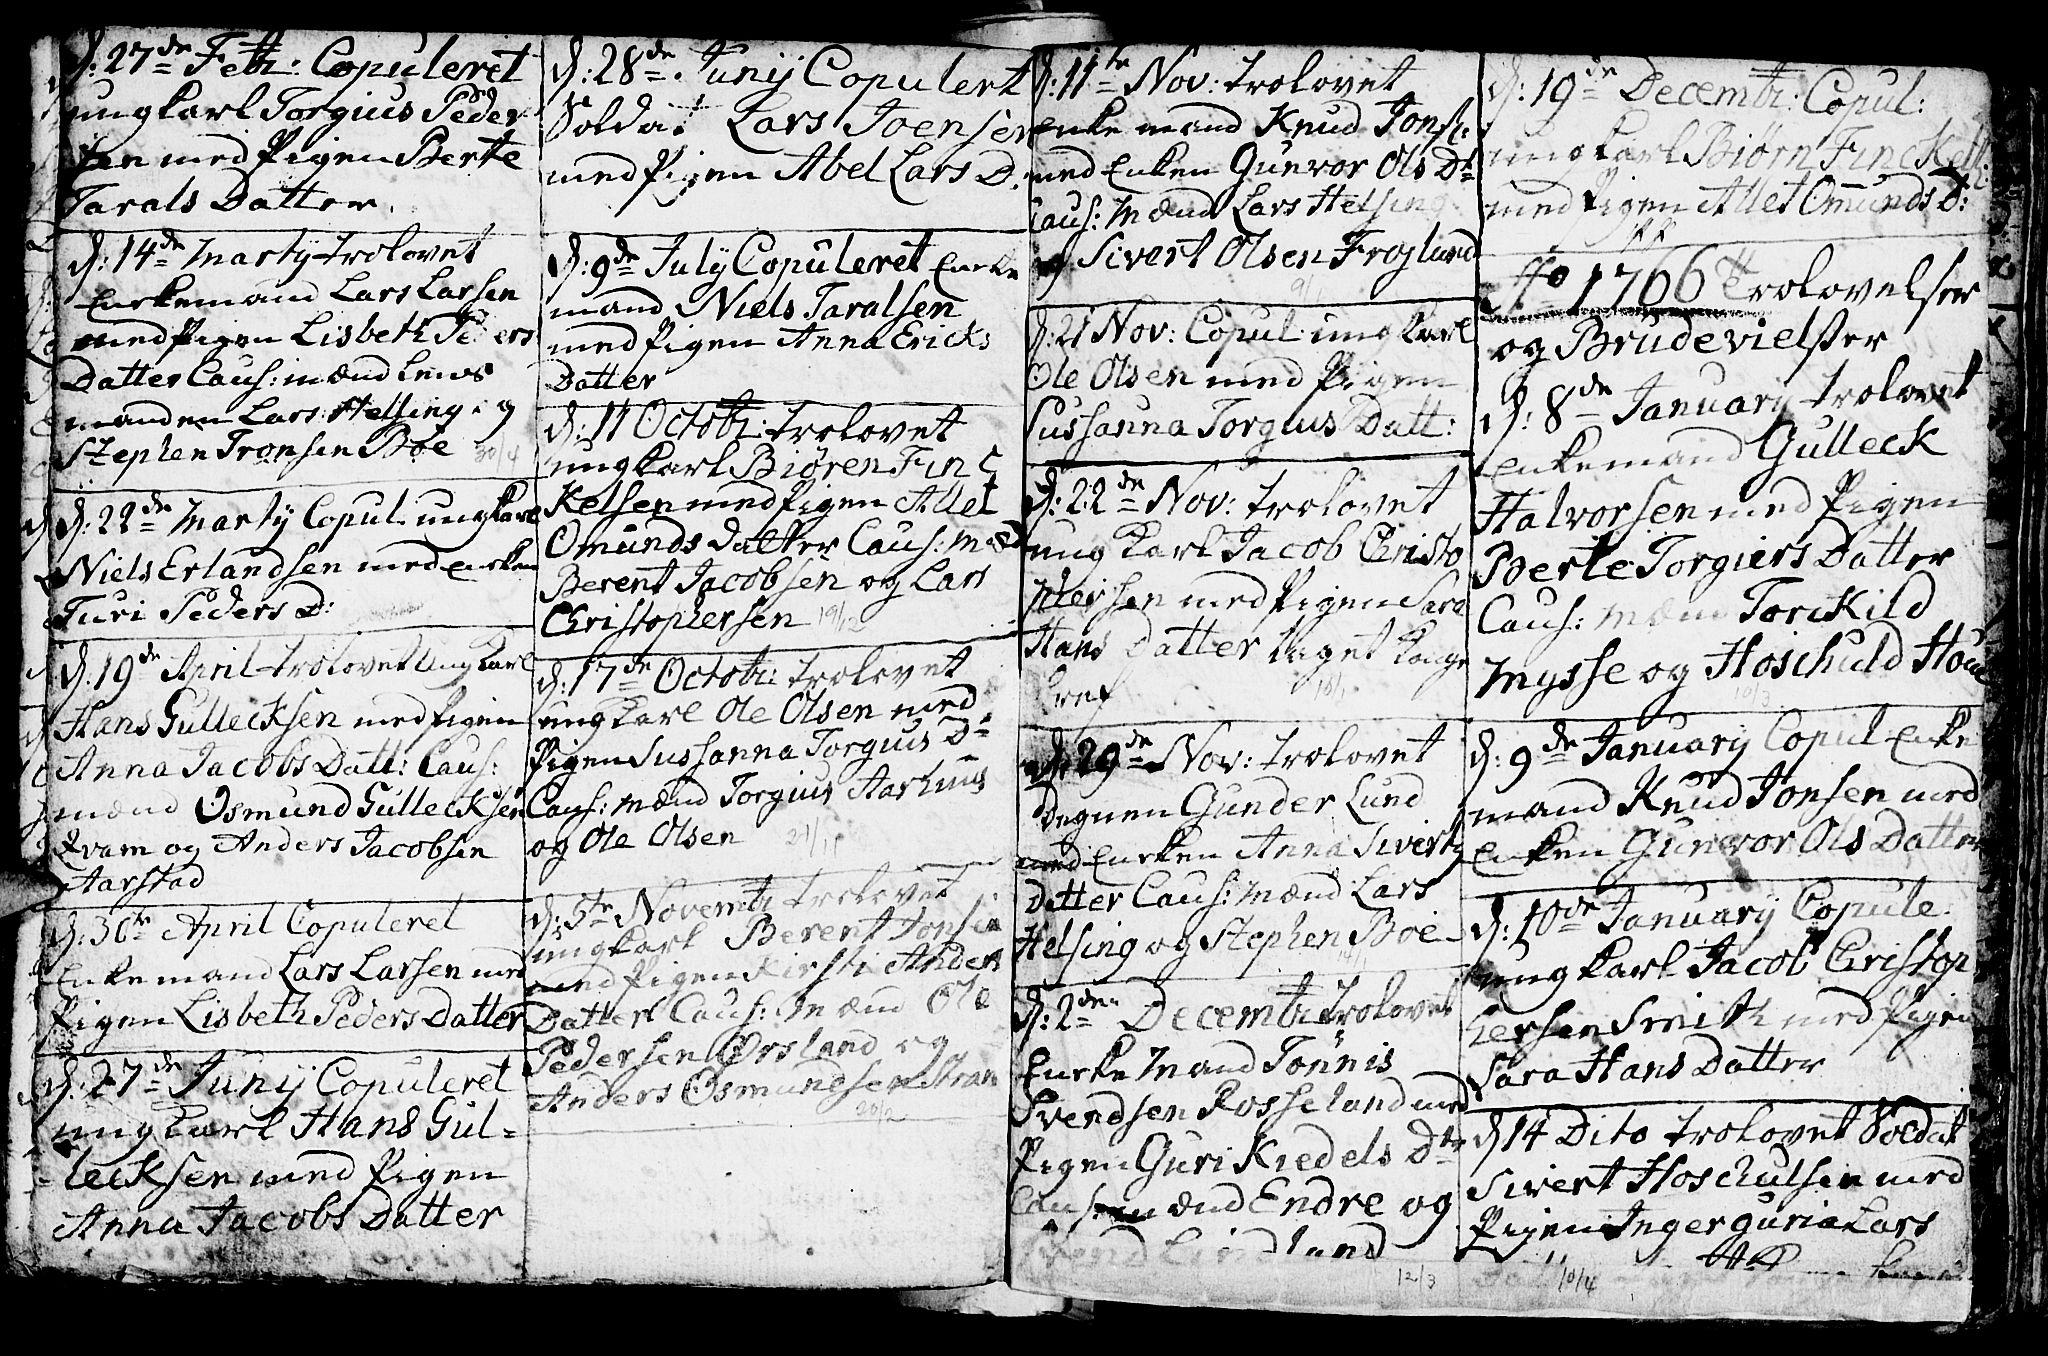 d: 27de Febr: Copuleret
ungkarl Torgius Peder
sen med Pigen Berte
Tarals Datter.
d: 14de Martij trolovet
Enkemand Lars Larsen
med Pigen Lisbeth Peders
Datter Caus: mænd Lens
manden Lars Helsing og
Stephen Tronsen Boe 30/4
d: 22de Martij Copul. ungkarl
Niels Erlandsen med Enken
Turi Peders D:
d: 19de April trolovet Ungkarl
Hans Gullecksen med Pigen
Anna Jacobs Datt: Caus:
mænd Osmund Gullecksen
Kvam og Anders Jacobsen
Aarstad
d: 30te April Copuleret
Enkemand Lars Larsen med
Pigen Lisbeth Peders Datter
d: 27de Junij Copuleret
ungkarl Hans Gul=
lecksen med Pigen
Anna Jacobs Datter
d: 28de Junij Copulert
Soldat Lars Joensen
med Pigen Abel Lars D.
d: 9de July Copuleret Encke
mand Niels Taralsen
med Pigen Anna Ericks
Datter
d: 11 Octobr: trolovet
ungkarl Biøren Finc
Kelsen med Pigen Allet
Omunds Datter Caus: mænd
Berent Jacobsen og Lars
Christophersen 19/12
d: 17de Octobr: trolovet
ungkarl Ole Olsen med
Pigen Sussanna Torgius D=
Caus: mænd Torgius Aarhuus
og Ole Olsen 21/11
d: 5te Novembr trolovet
ungkarl Berent Jonsen
med Pigen Kirsti Anders
Datter Caus: mænd Ole
Pedersen Ørsland og
Anders Osmundsen
20/2
d: 11te Nov: trolovet
Enke mand Knud Jonsen
med Enken Gunvor Ols Dt
Caus: mænd Lars Helsing
og Sivert Olsen Froglund
9/1
d: 21 Nov: Copul ungkarl
Ole Olsen med Pigen
Sussanna Torgius Datt:
d: 22de Nov: trolovet
ungkarl Jacob Christo
phersen med Pigen Sara
Hans Datter taget Konge
bref 10/1
d: 29de Nov: trolovet
Degnen Gunder Lund
med Encken Anna Siverts
Datter Caus: mænd Lars
Helsing og Stephen Boe
d: 2den Decembr trolovet
Encke Mand Tønnis
Svendsen Rosseland med
Pigen Guri Kiedels Dtr
Caus: mænd Endre og
Svend land
12/3
d: 19de Decembr: Copul:
ungkarl Biørn Finckells:
med Pigen Allet Omunds D:
Ao 1766 Trolovelser
og Brudevielser
d: 8de January trolovet
Enkemand Gulleck
Halvorsen med Pigen
Berte Torgiers Datter
Caus: mæn Torckild
Mysse og Hoschuld Houe
10/3
d: 9de January Copul Enke
mand Knud Jonsen med
Enken Gunvor Ols Datter
d: 10de January Copule
ungkarl Jacob Christop
hersen Smith med Pigen
Sara Hans Datter
d 14 Dito trolovet Soldat
Sivert Hoschulsen med
Pigen Inger guria Lars
10/4